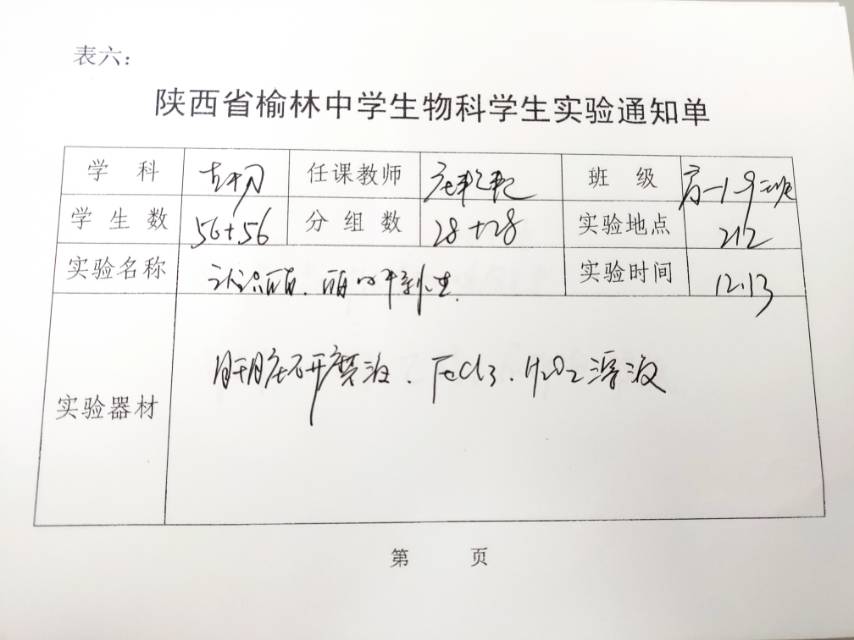 表六：
陕西省榆林中学生物科学生实验通知单
学 科 任课教师 班 级 高一1 9二班
学 生 数 56+56 分 组 数 28+28 实验地点 212
实验名称 认识酶、酶的 实验时间 12.13
实验器材 肝脏研磨液、FeCl3、H2O2溶液
第 页